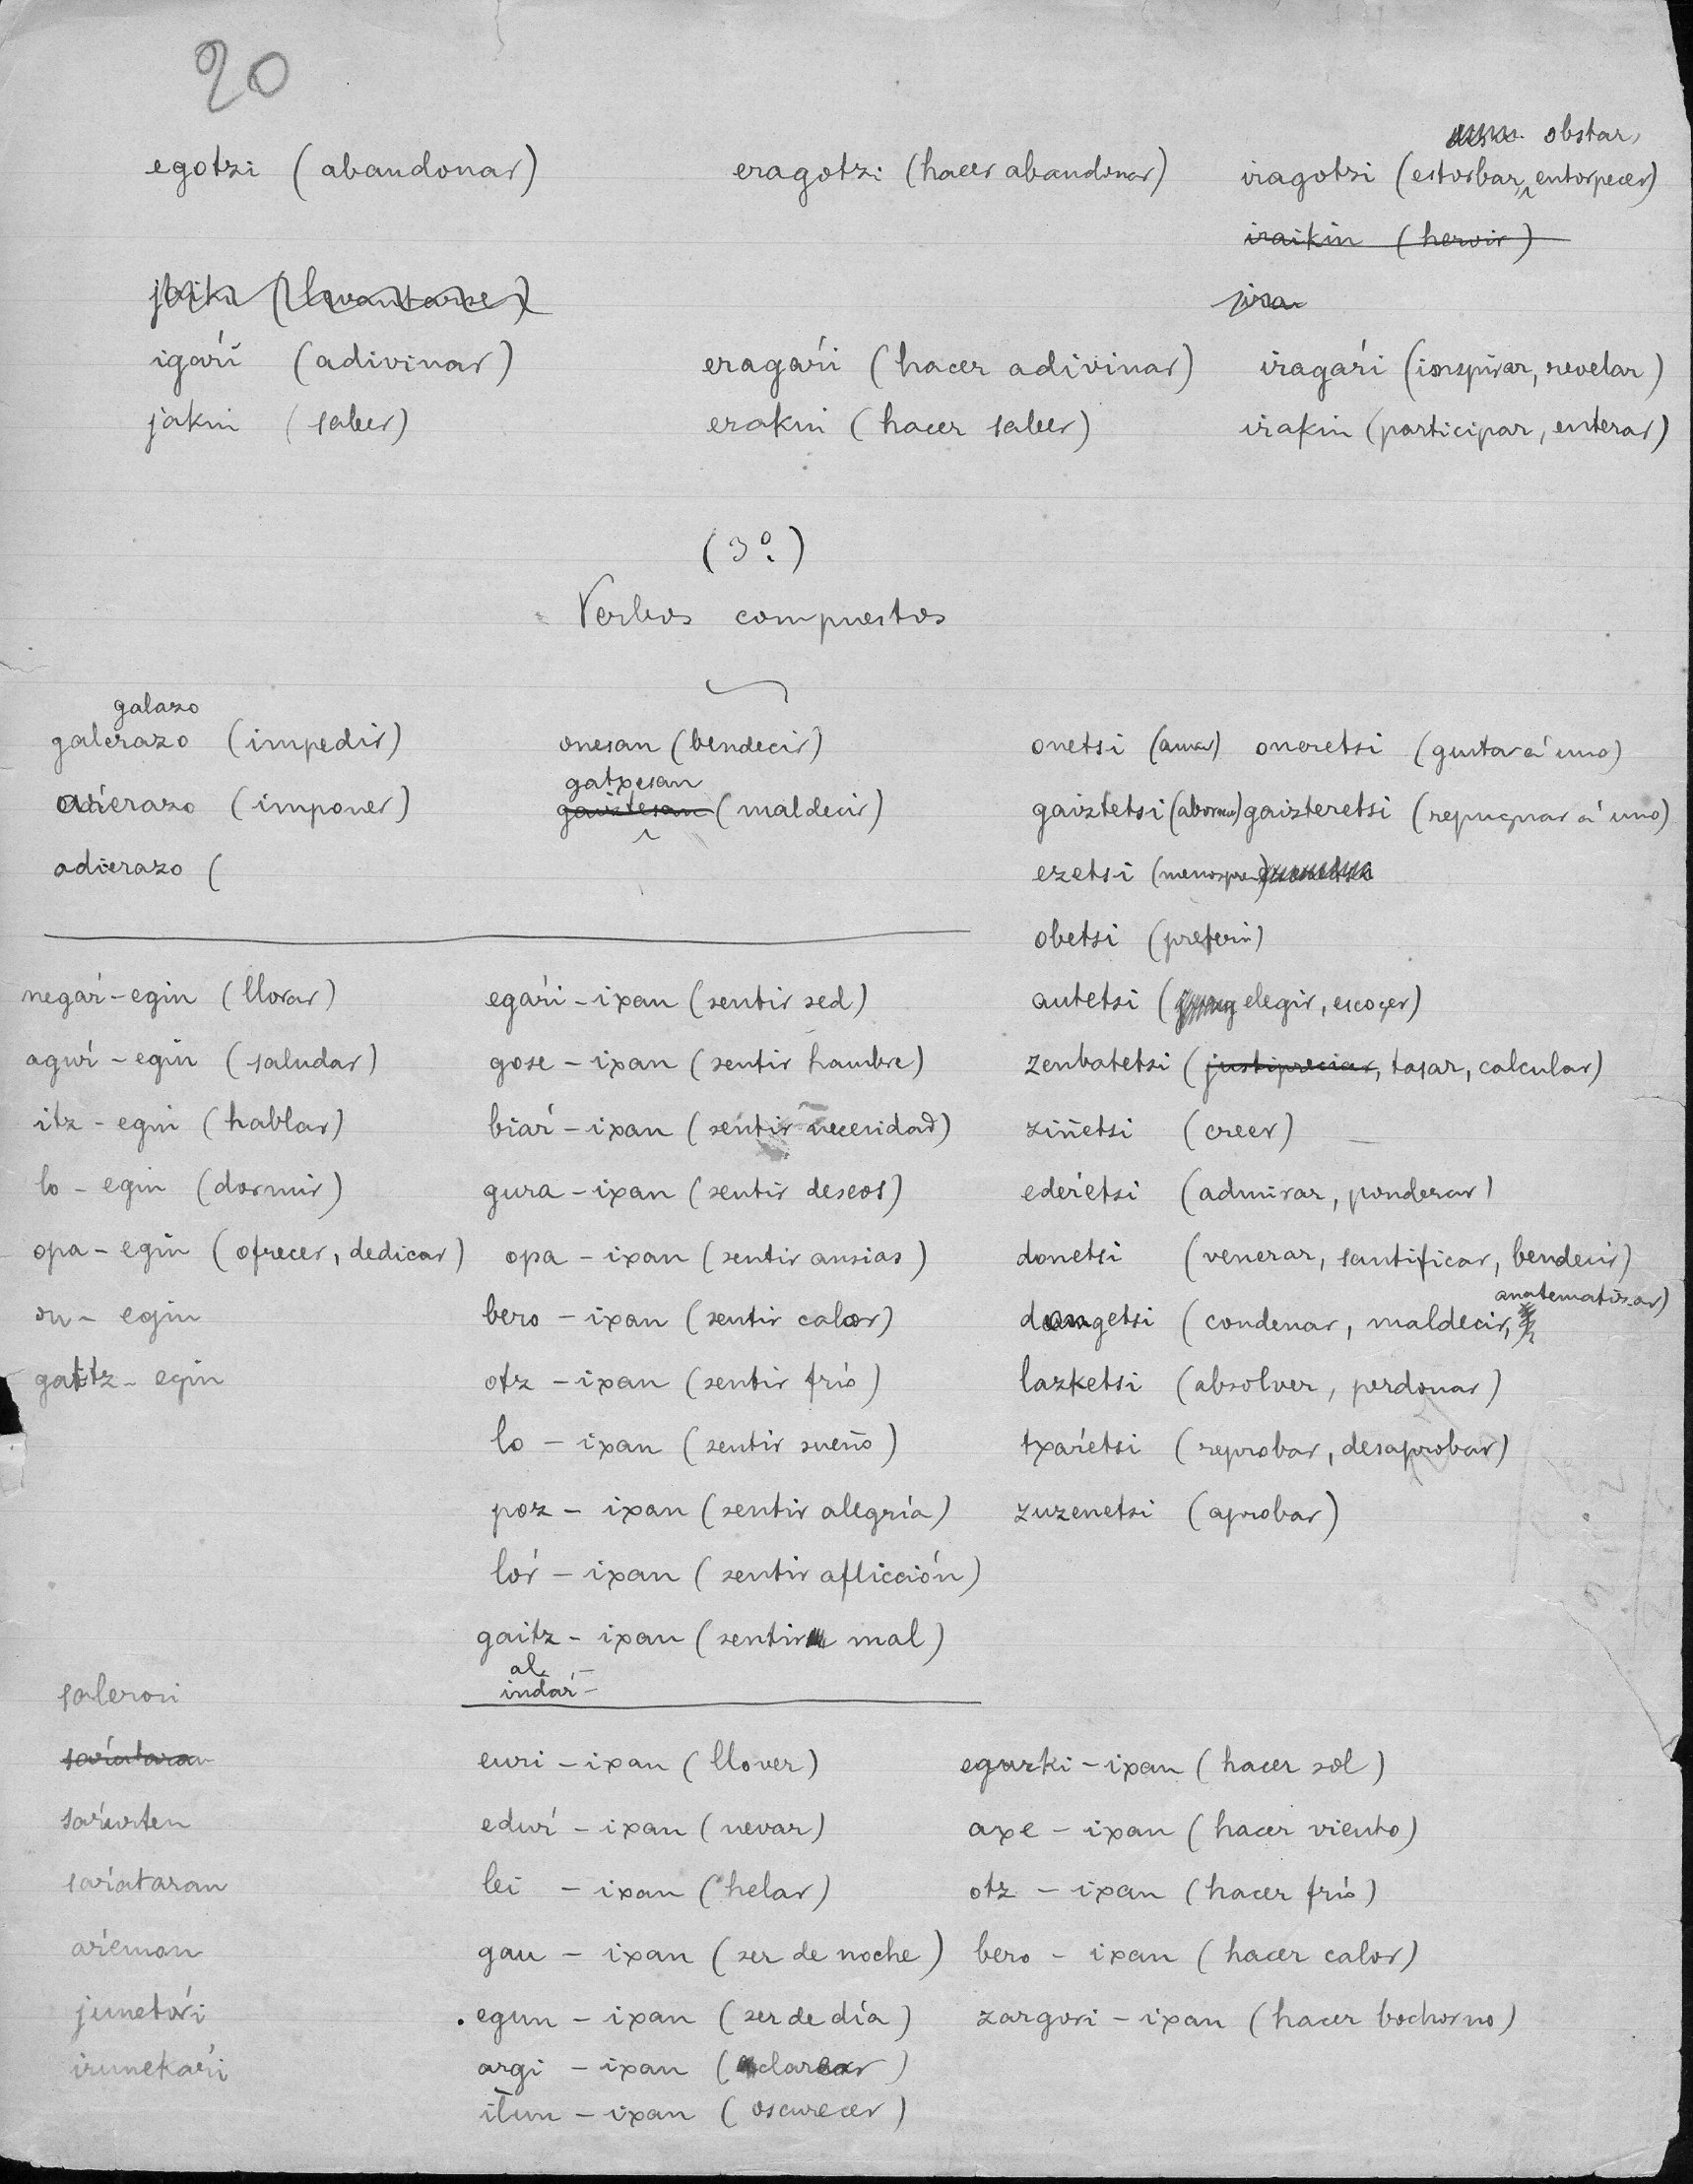 20
obstar,
egotzi (abandonar) eragotzi (hacer abandonar) iragotzi (estorbar, entorpecer)
iraikin (hervir)
jaiki (levantarse) jira
igaŕi (adivinar) eragaŕi (hacer adivinar) iragaŕi (inspirar, revelar)
jakin (saber) erakin (hacer saber) irakin (participar, enterar)
(3º)
Verbos compuestos
galazo
galerazo (impedir) onesan (bendecir) onetsi (amar) oneretsi (gustar á uno)
gatxesan
aŕerazo (imponer) gaiztesan (maldecir) gaiztetsi (aborrecer) gaizteretsi (repugnar á uno)
adierazo ( ezetsi (menospre)
obetsi (preferir)
negaŕ-egin (llorar) egaŕi-ixan (sentir sed) autetsi (elegir, escoger)
aguŕ-egin (saludar) gose-ixan (sentir hambre) zenbatetsi (justipreciar, tasar, calcular)
itz-egin (hablar) biaŕ-ixan (sentir necesidad) ziñetsi (creer)
lo-egin (dormir) gura-ixan (sentir deseos) edeŕetsi (admirar, ponderar)
opa-egin (ofrecer, dedicar) opa-ixan (sentir ansias) donetsi (venerar, santificar, bendecir)
anatematizar)
on-egin bero-ixan (sentir calor) dongetsi (condenar, maldecir,
gaitz-egin otz-ixan (sentir frío) lazketsi (absolver, perdonar)
lo-ixan (sentir sueño) txaŕetsi (reprobar, desaprobar)
poz-ixan (sentir alegría) zuzenetsi (aprobar)
loŕ-ixan (sentir aflicción)
gaitz-ixan (sentir mal)
al-
indaŕ-
salerosi
saŕiataran euri-ixan (llover) eguzki-ixan (hacer sol)
saŕurten eduŕ-ixan (nevar) axe-ixan (hacer viento)
saŕiataran lei-ixan (helar) otz-ixan (hacer frío)
aŕiemon gau-ixan (ser de noche) bero-ixan (hacer calor)
junetoŕi egun-ixan (ser de día) zargori-ixan (hacer bochorno)
irunekaŕi argi-ixan (clarear)
ilun-ixan (oscurecer)